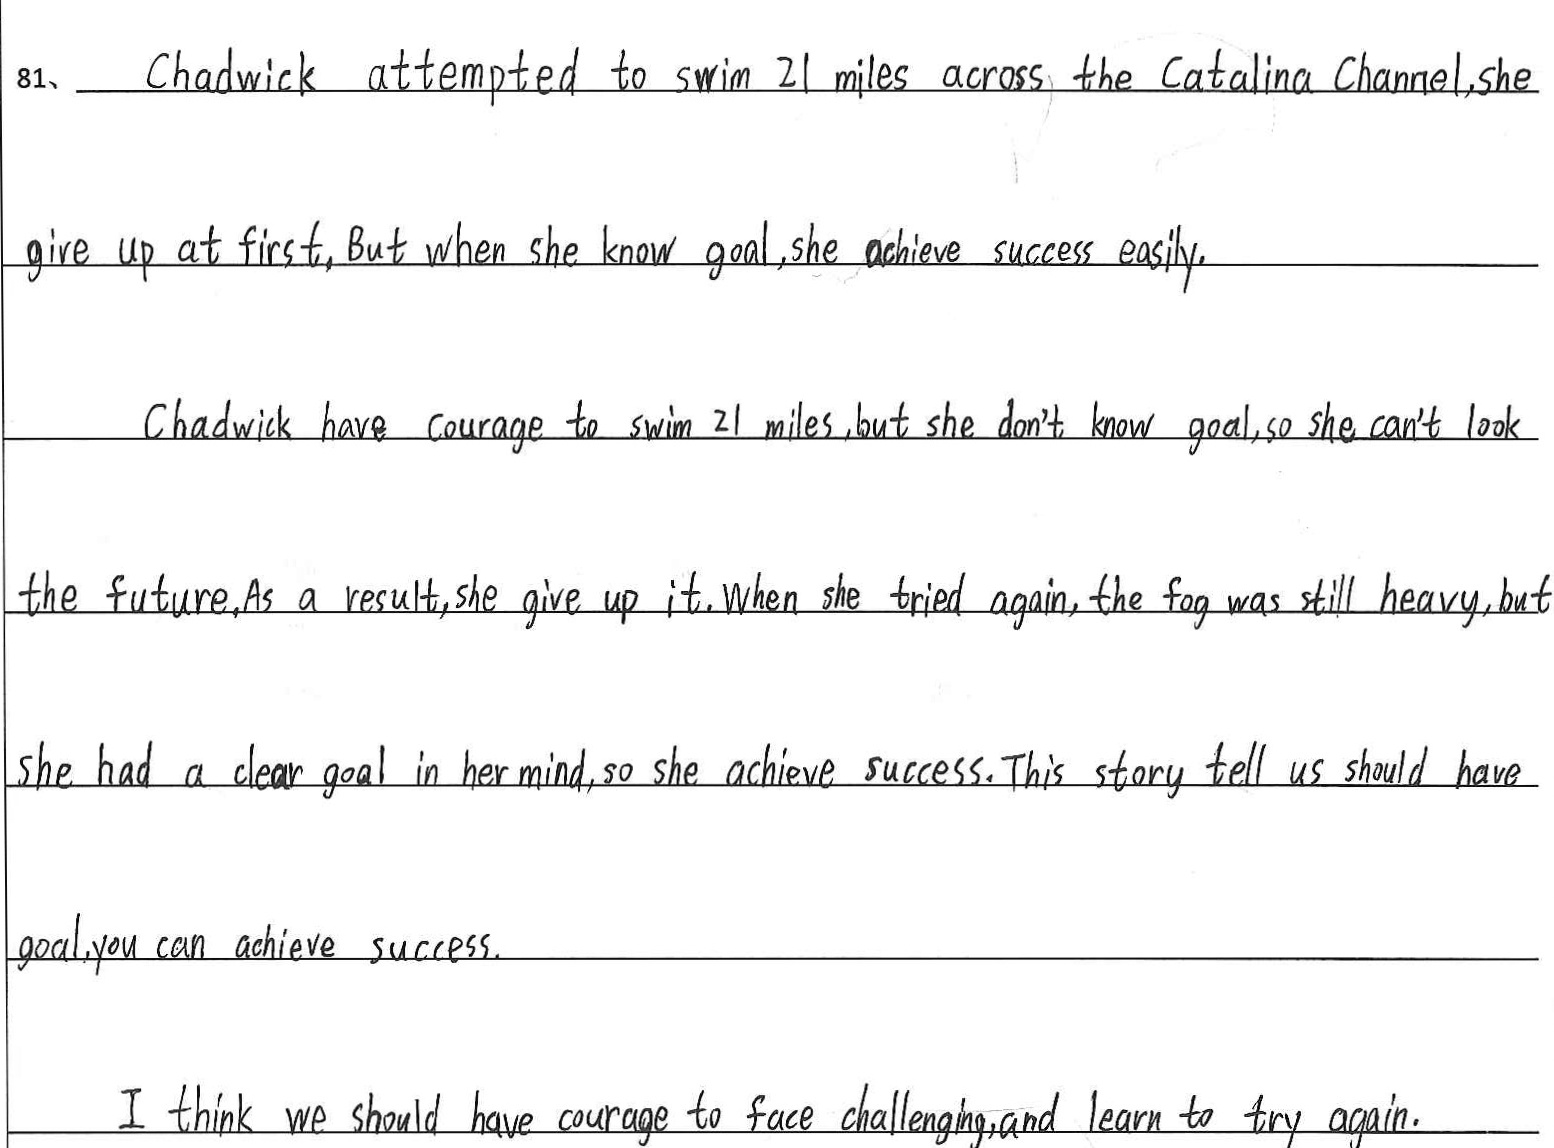 81、 Chadwick attempted to swim 21 miles across the Catalina Channel, she
give up at first, But when she know goal, she achieve success easily.
Chadwick have courage to swim 21 miles, but she don't know goal, so she can't look
the future, As a result, she give up it. When she tried again, the fog was still heavy, but
she had a clear goal in her mind, so she achieve success. This story tell us should have
goal, you can achieve success.
I think we should have courage to face challenging, and learn to try again.